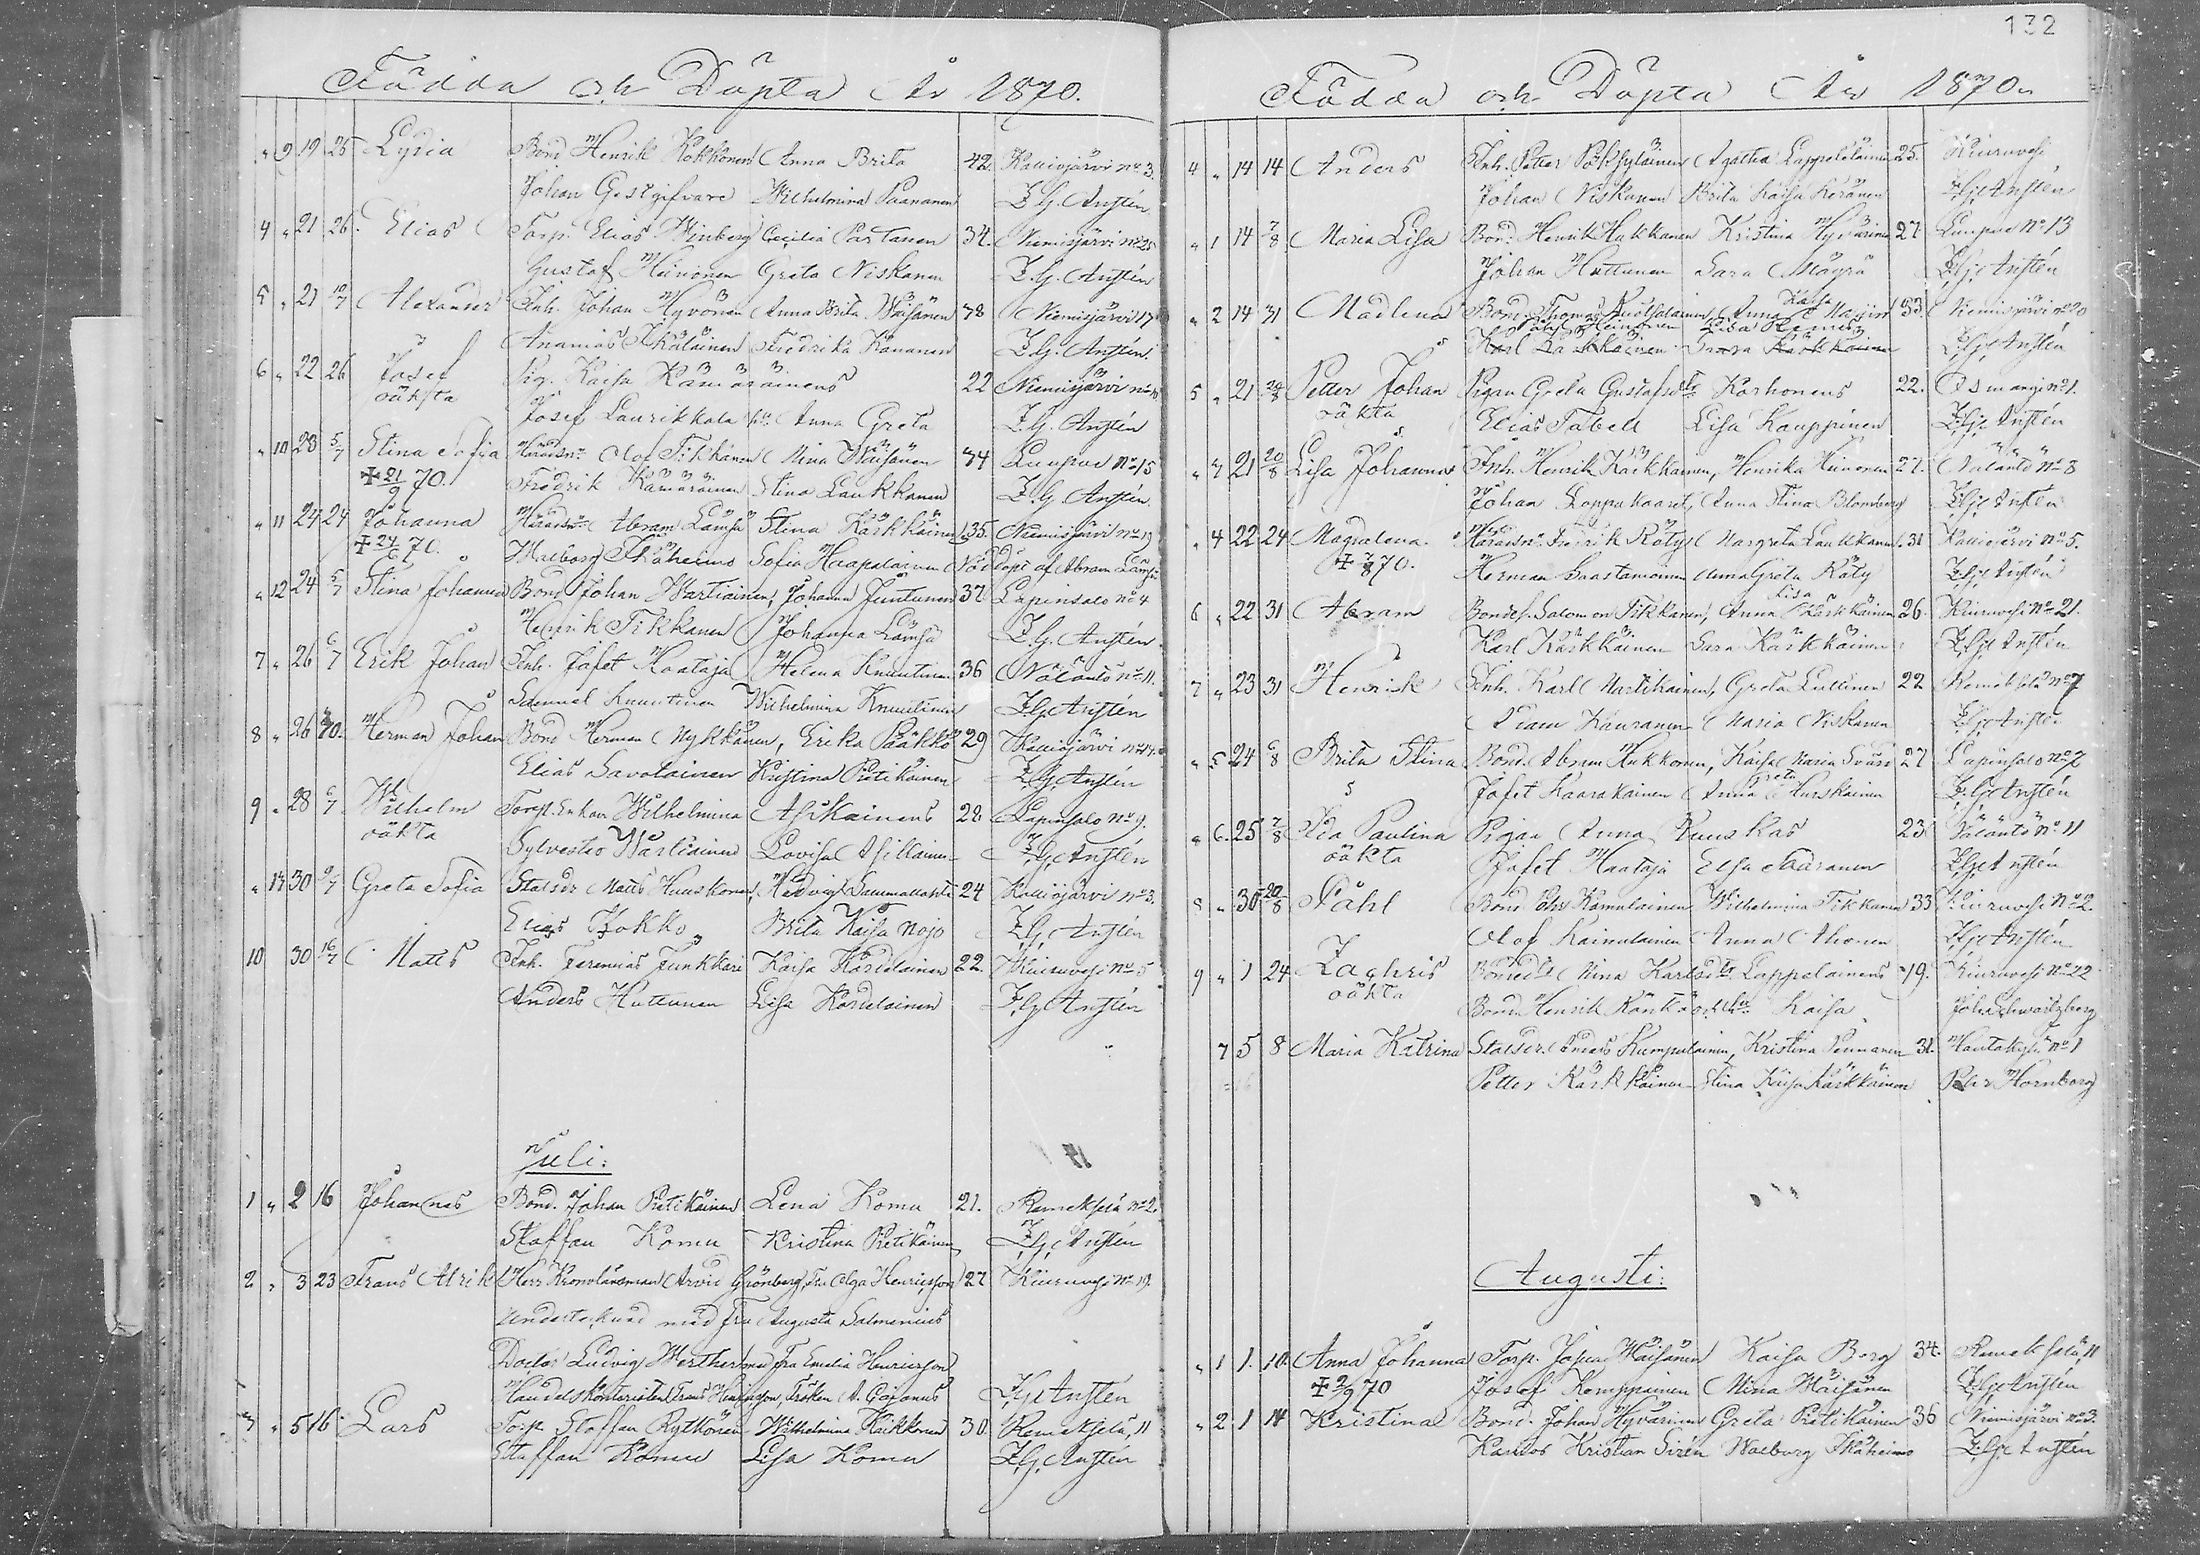 Födda och Döpta År 1870.
" 9 19 25 Lydia Bond Henrik Kokkonen Anna Brita 42. Kalliojärvi No 3.
Johan Gestgifvare Wilhelmina Paananen Z.G. Anstén
4 " 21 26. Elias Torp. Elias Winberg Cecilia Partanen 34. Niemisjärvi No 25
Gustaf Heinonen Greta Niskanen Z.G. Anstén
5 " 21 10/7 Alexander Inh. Johan Hyvönen Anna Brita Väisänen 38 Niemisjärvi 17
Ananias Ikäläinen Fredrika Kananen Z.G. Anstén.
6 " 22 26 Josef Pig. Kaisa Kämäräinens 22 Niemisjärvi
oäkta Josef Laurikkala Anna Greta Z.G. Anstén
" 10 23 5/7 Stina Sofia Häradsm. Olof Tikkanen Mina Väisänen 34 Luupue No 15
+ 21/9 70. Fredrik Kämäräinen Stina Laukkanen Z.G. Anstén.
" 11 24 24 Johanna Häradsm. Abram Lämsä Stina Kärkkäinen 35. Niemisjärvi No 19
+ 24/6 70. Walborg Thäheimo Sofia Haapalainen Nöddöpt af Abram Lämsä
" 12 24 5/7 Stina Johanna Bond Johan Martiainen, Johanna Juntunen 37 Lapinsalo No 4
Henrik Tikkanen Johanna Lämsä Z.G. Anstén
7 " 26 6/7 Erik Johan Inh. Jafet Haataja Helena Knuutinen 36 Näläntö No 11.
Samuel Knuutinen Wilhelmina Knuutinen Z.G. Anstén
8 " 26 Herman Johan Bond Herman Nykkänen, Erika Pääkkö 29 Kalliojärvi
Elias Savolainen Kristina Pietikäinen Z.G. Anstén
9 " 28 6/7 Wilhelm Torp. Enkan Wilhelmina Asikainens 28 Lapinsalo No 9.
oäkta Sylvester Wartiainen Lovisa Z.G. Anstén
" 13 30 9/7 Greta Sofia Statsdr Matts Huuskonen, Hedvig Summallahti 24 Kalliojärvi No 3.
Elias Kokko Brita Kaisa Nojo Z.G. Anstén
10 30 16/7 Matts Inh. Jeremias Junkkari Kaisa Kärdeläinen 22. Kiuruvesi No 5
Anders Huttunen Lisa Kärdeläinen Z.G. Anstén
Juli:
1 " 2 16 Johannes Bond. Johan Pietikäinen Lena Komu 21. Remekselä No 2.
Staffan Komu Kristina Pietikäinen Z.G. Anstén
2 " 3 23 Frans Alrik Herr Kronolänsman Arvid Grönberg, Fru Olga Henricsson 27 Kiuruvesi No 19.
Undertecknad med Fru Augusta Salmenius
Doctor Ludvig Werther med Fru Emelia Henricsson
Handelskontoristen Frans Henricsson, Fröken A. Cajanus Z.G. Anstén
3 " 5 16 Lars Torp. Staffan Rytkönen Wilhelmina Kaikkonen 30 Remekselä, 11
Staffan Komu Lisa Komu Z.G. Anstén
132
Födda och Döpta År 1870.
4 " 14 14 Anders Inh. Petter Pöksyläinen Agatha Lappalainen 25. Kiuruvesi
Johan Niskanen Brita Kaisa Keränen Z.G. Anstén
" 1 14 7/8 Maria Lisa Bond. Henrik Hukkanen Kristina Hyvärinen 27 Luupue No 13
Johan Huttunen Sara Mäyrä Z.G. Anstén
" 2 14 31 Madlena Bond Thomas Ruotsalainen, Anna Kaisa Marjin 33. Niemisjärvi No 20
Påhl Heinonen Lisa Remes
Karl Kärkkäinen Sara Kärkkäinen Z.G. Anstén
5 " 21 24/8 Petter Johan Pigan Greta Gustafsdtr Korhonens 22. Osmangi No 1.
oäkta Elias Tabell Lisa Kauppinen Z.G. Anstén
" 3 21 20/8 Lisa Johanna Inh. Henrik Kärkkäinen, Henrika Heinonen 27. Näläntö No 8
Johan Loppukaaret, Anna Stina Blomberg Z.G. Anstén
" 4 22 24 Magdalena Häradsm. Fredrik Räty Margreta Laukkanen 31 Kalliojärvi No 5.
+ 7/8 70. Herman Saastamoinen Anna Greta Räty Z.G. Anstén
6 " 22 31 Abram Bondes. Salomon Tikkanen, Anna Lisa Kärkkäinen 26. Kiuruvesi No 21.
Karl Kärkkäinen Sara Kärkkäinen Z.G. Anstén
7 " 23 31 Henrik Inh. Karl Martikainen, Greta Lullinen 22 Remekselä No 7
Adam Kauranen Maria Niskanen Z.G. Anstén
" 5 24 6/8 Brita Stina Bond. Abram Hukkonen, Kaisa Maria Svärd 27 Lapinsalo No 2
Jafet Kaarakainen Anna Greta Hurskainen Z.G. Anstén
" 6. 25 7/8 Ida Paulina Pigan Anna Ruuskas 23 Näläntö No 11
oäkta Jafet Haataja Elsa Määränen Z.G. Anstén
8 " 30 20/8 Påhl Bond Påhl Kämäläinen Wilhelmina Tikkanen 33 Kiuruvesi No 2.
Olof Kainulainen Anna Ahonen Z.G. Anstén
9 " 1 24 Zachris Bondedtr Mina Karlsdtr Lappalainens 19. Kiuruvesi No 22
oäkta Bond. Henrik Kaisa Joh. Schwartzberg
7 5 8 Maria Katrina Statsdr. Anders Kumpulainen, Kristina Pennanen 31. Hautakylä No 1
Petter Kärkkäinen Stina Kaisa Kärkkäinen Petter Hornborg
Augusti:
" 1 1. 10. Anna Johanna Torp. Josua Väisänen Kaisa Borg 34. Remekselä, 11
+ 2/9 70 Josef Komppainen Mina Väisänen Z.G. Anstén
" 2 1 14 Kristina Bond. Johan Hyvärinen Greta Pietikäinen 36 Niemisjärvi No 3.
Kantor Kristian Sirén Walborg Thäheimo Z.G. Anstén